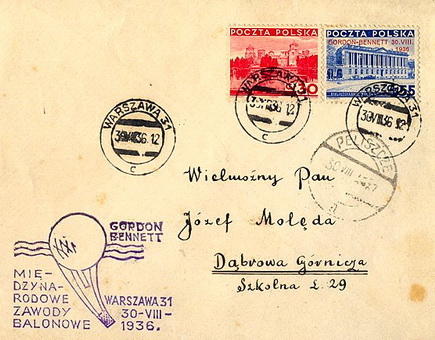 POCZTA POLSKA
30
POCZTA POLSKA
GORDON-BENNETT 30.VIII.
1936
55
WARSZAWA 31
30.VIII.36.12
c
WARSZAWA 31
36.12
c
WARSZAWA 31
30.VIII.36.12
c
30 VIII
Wielmożny Pan
Józef Molęda
Dąbrowa Górnicza
Szkolna L. 29
GORDON
BENNETT
MIĘ-
DZYNA-
RODOWE
ZAWODY
BALONOWE
WARSZAWA 31
30-VIII-
1936.